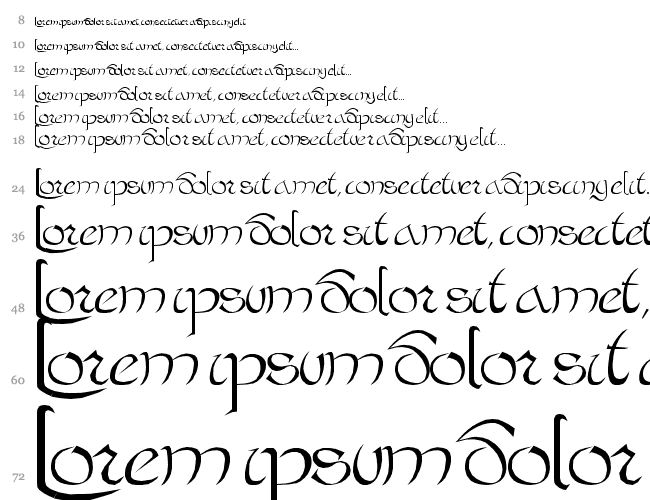 8 Lorem ipsum dolor sit amet, consectetuer adipiscing elit
10 Lorem ipsum dolor sit amet, consectetuer adipiscing elit...
12 Lorem ipsum dolor sit amet, consectetuer adipiscing elit...
14 Lorem ipsum dolor sit amet, consectetuer adipiscing elit...
16 Lorem ipsum dolor sit amet, consectetuer adipiscing elit...
18 Lorem ipsum dolor sit amet, consectetuer adipiscing elit...
24 Lorem ipsum dolor sit amet, consectetuer adipiscing elit.
36 Lorem ipsum dolor sit amet, consectet
48 Lorem ipsum dolor sit amet,
60 Lorem ipsum dolor sit a
72 Lorem ipsum dolor